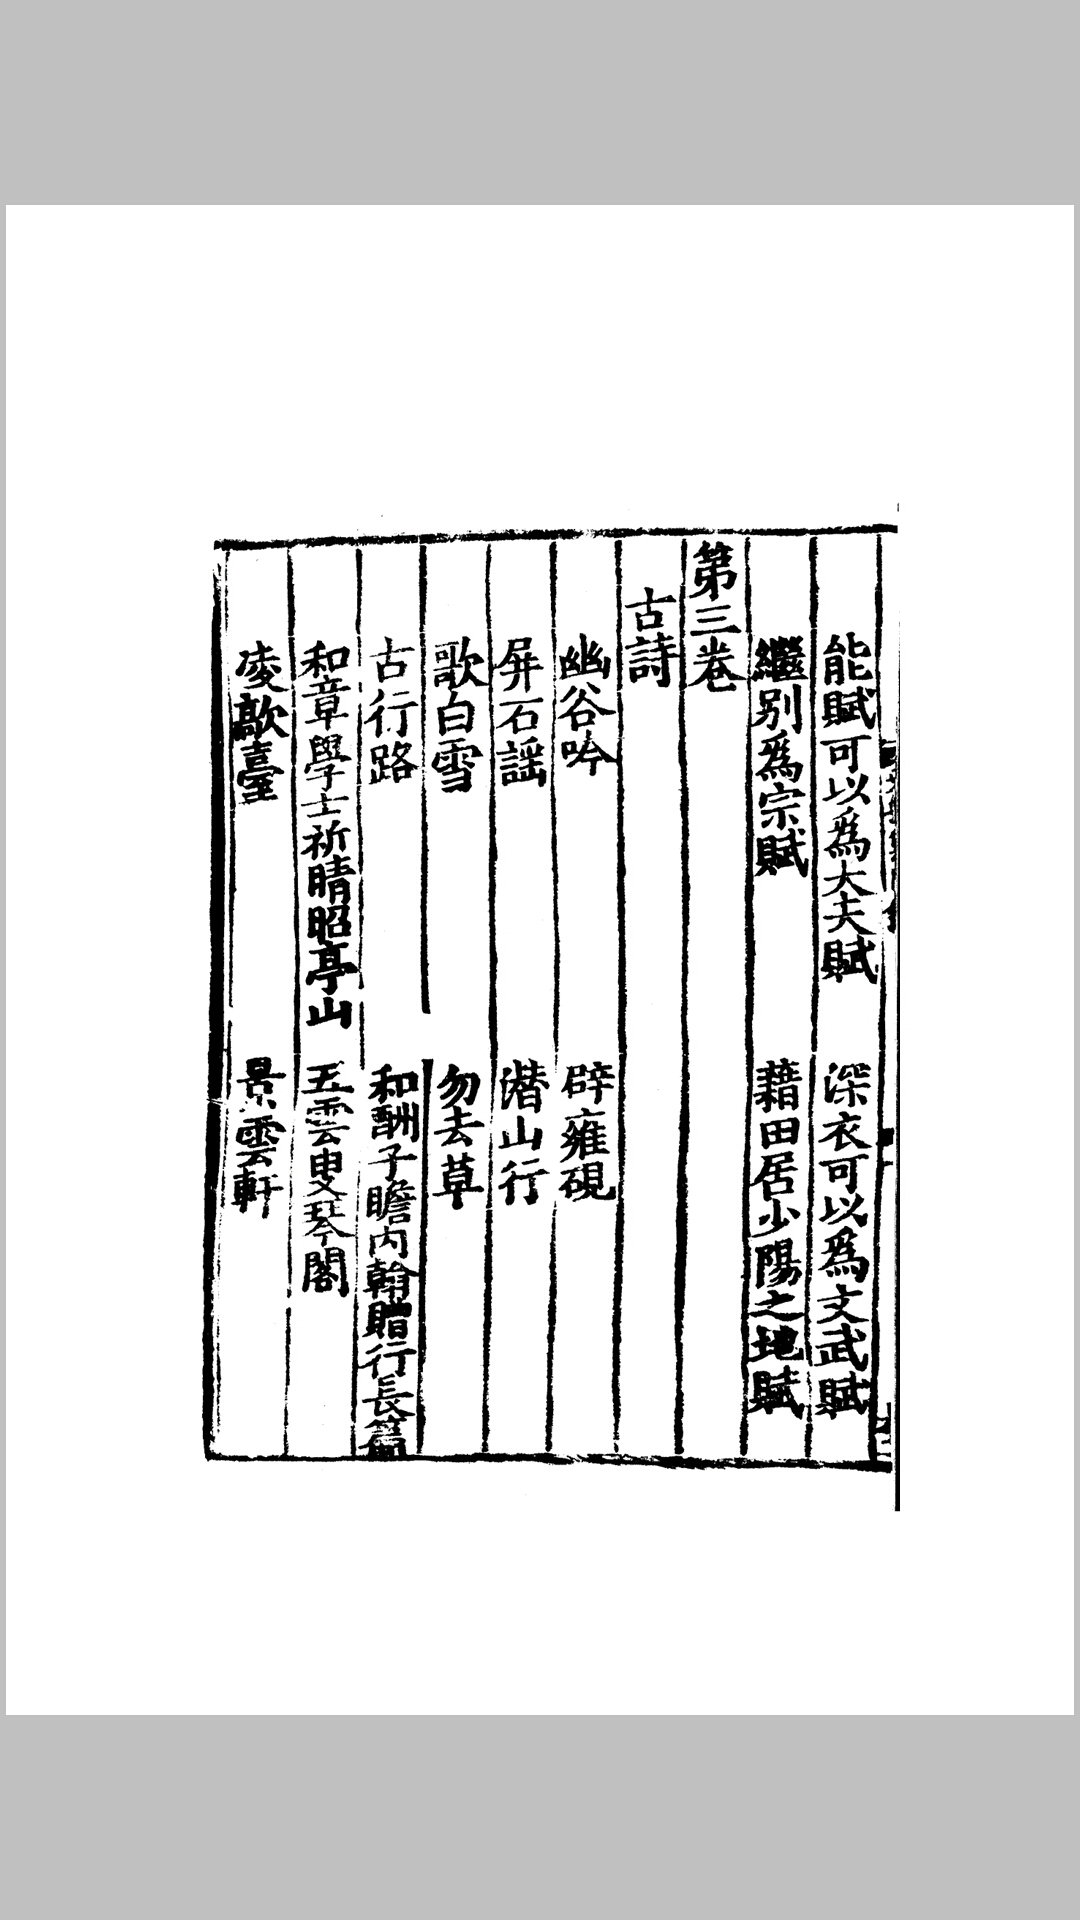 能賦可以爲大夫賦　深衣可以爲文武賦
繼别爲宗賦　藉田居少陽之地賦
第三卷
古詩
幽谷吟　辟雍硯
屏石謡　潛山行
歌白雪　勿去草
古行路　和酬子瞻内翰贈行長篇
和章學士祈晴昭亭山　五雲叟琴閣
凌歊臺　景雲軒